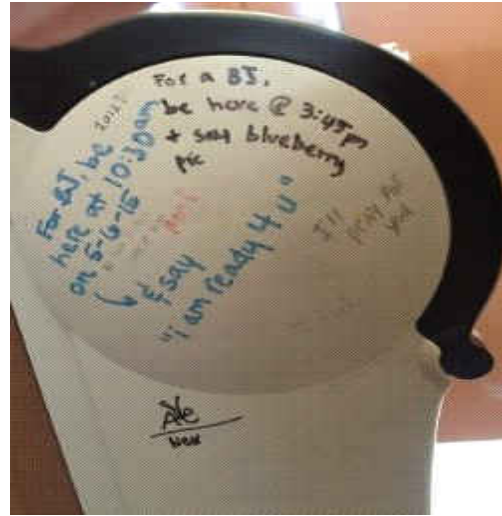 For a BJ,
be here @ 3:45pm
+ say blueberry
pie
For BJ, be
here at 10:30am
on 5-6-15
& say
"i am ready 4 u"
I'll
pray for
you